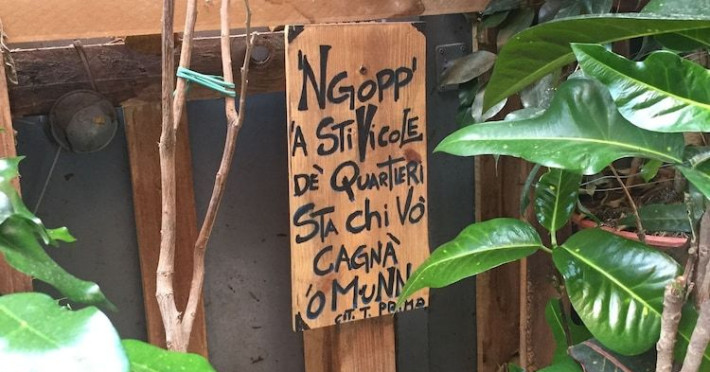 'NGOPP'
'A STI VICOLE
DÈ QUARTIERI
STA CHI VÒ
CAGNÀ
'O MUNN
CIT. T. PRIMO